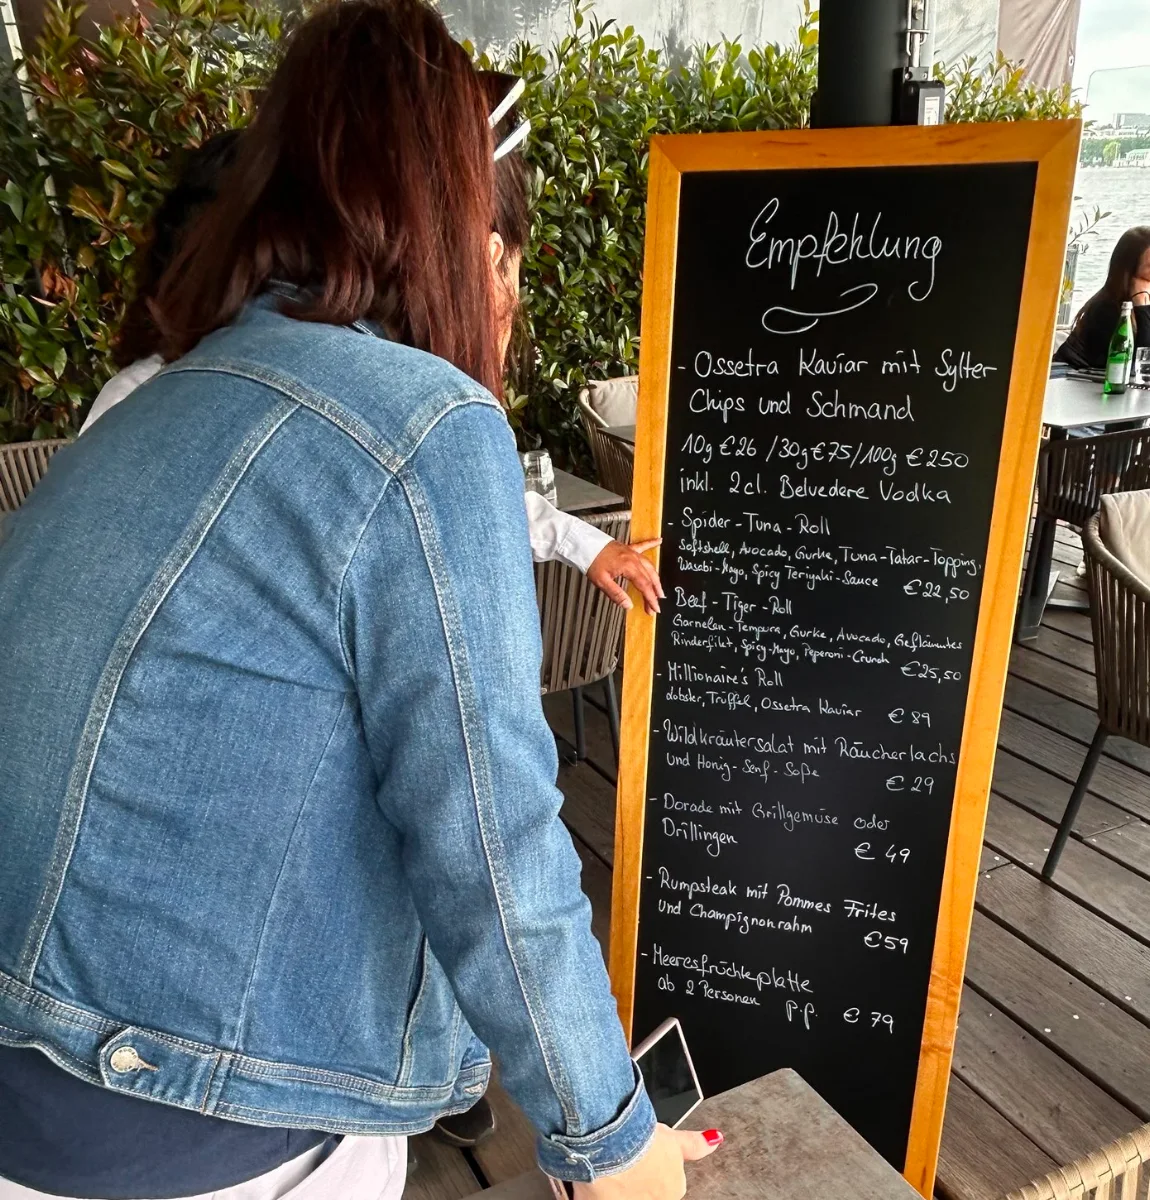 Empfehlung
- Ossetra Kaviar mit Sylter
Chips und Schmand
10g €26 /30g €75/100g €250
inkl. 2cl. Belvedere Vodka
- Spider-Tuna-Roll
Softshell, Avocado, Gurke, Tuna-Tatar-Topping,
Wasabi-Mayo, Spicy Teriyaki-Sauce €22,50
- Beef-Tiger-Roll
Garnelen-Tempura, Gurke, Avocado, Geflämmtes
Rinderfilet, Spicy-Mayo, Peperoni-Crunch €25,50
- Millionaire's Roll
Lobster, Trüffel, Ossetra Kaviar €89
- Wildkräutersalat mit Räucherlachs
und Honig-Senf-Soße €29
- Dorade mit Grillgemüse oder
Drillingen €49
- Rumpsteak mit Pommes Frites
und Champignonrahm €59
- Meeresfrüchteplatte
ab 2 Personen p.p. €79